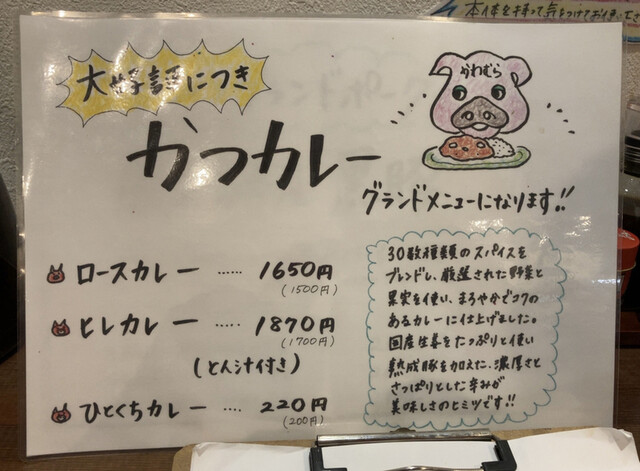 本体を持って気をつけてお使いくださ
大好評につき
かわむら
かつカレー
グランドメニューになります!!
ロースカレー …… 1650円
(1500円)
ヒレカレー …… 1870円
(1700円)
(とん汁付き)
ひとくちカレー …… 220円
(200円)
30数種類のスパイスを
ブレンドし、厳選された野菜と
果実を使い、まろやかでコクの
あるカレーに仕上げました。
国産生姜をたっぷりと使い
熟成豚を加えた、濃厚さと
さっぱりとした辛みが
美味しさのヒミツです!!